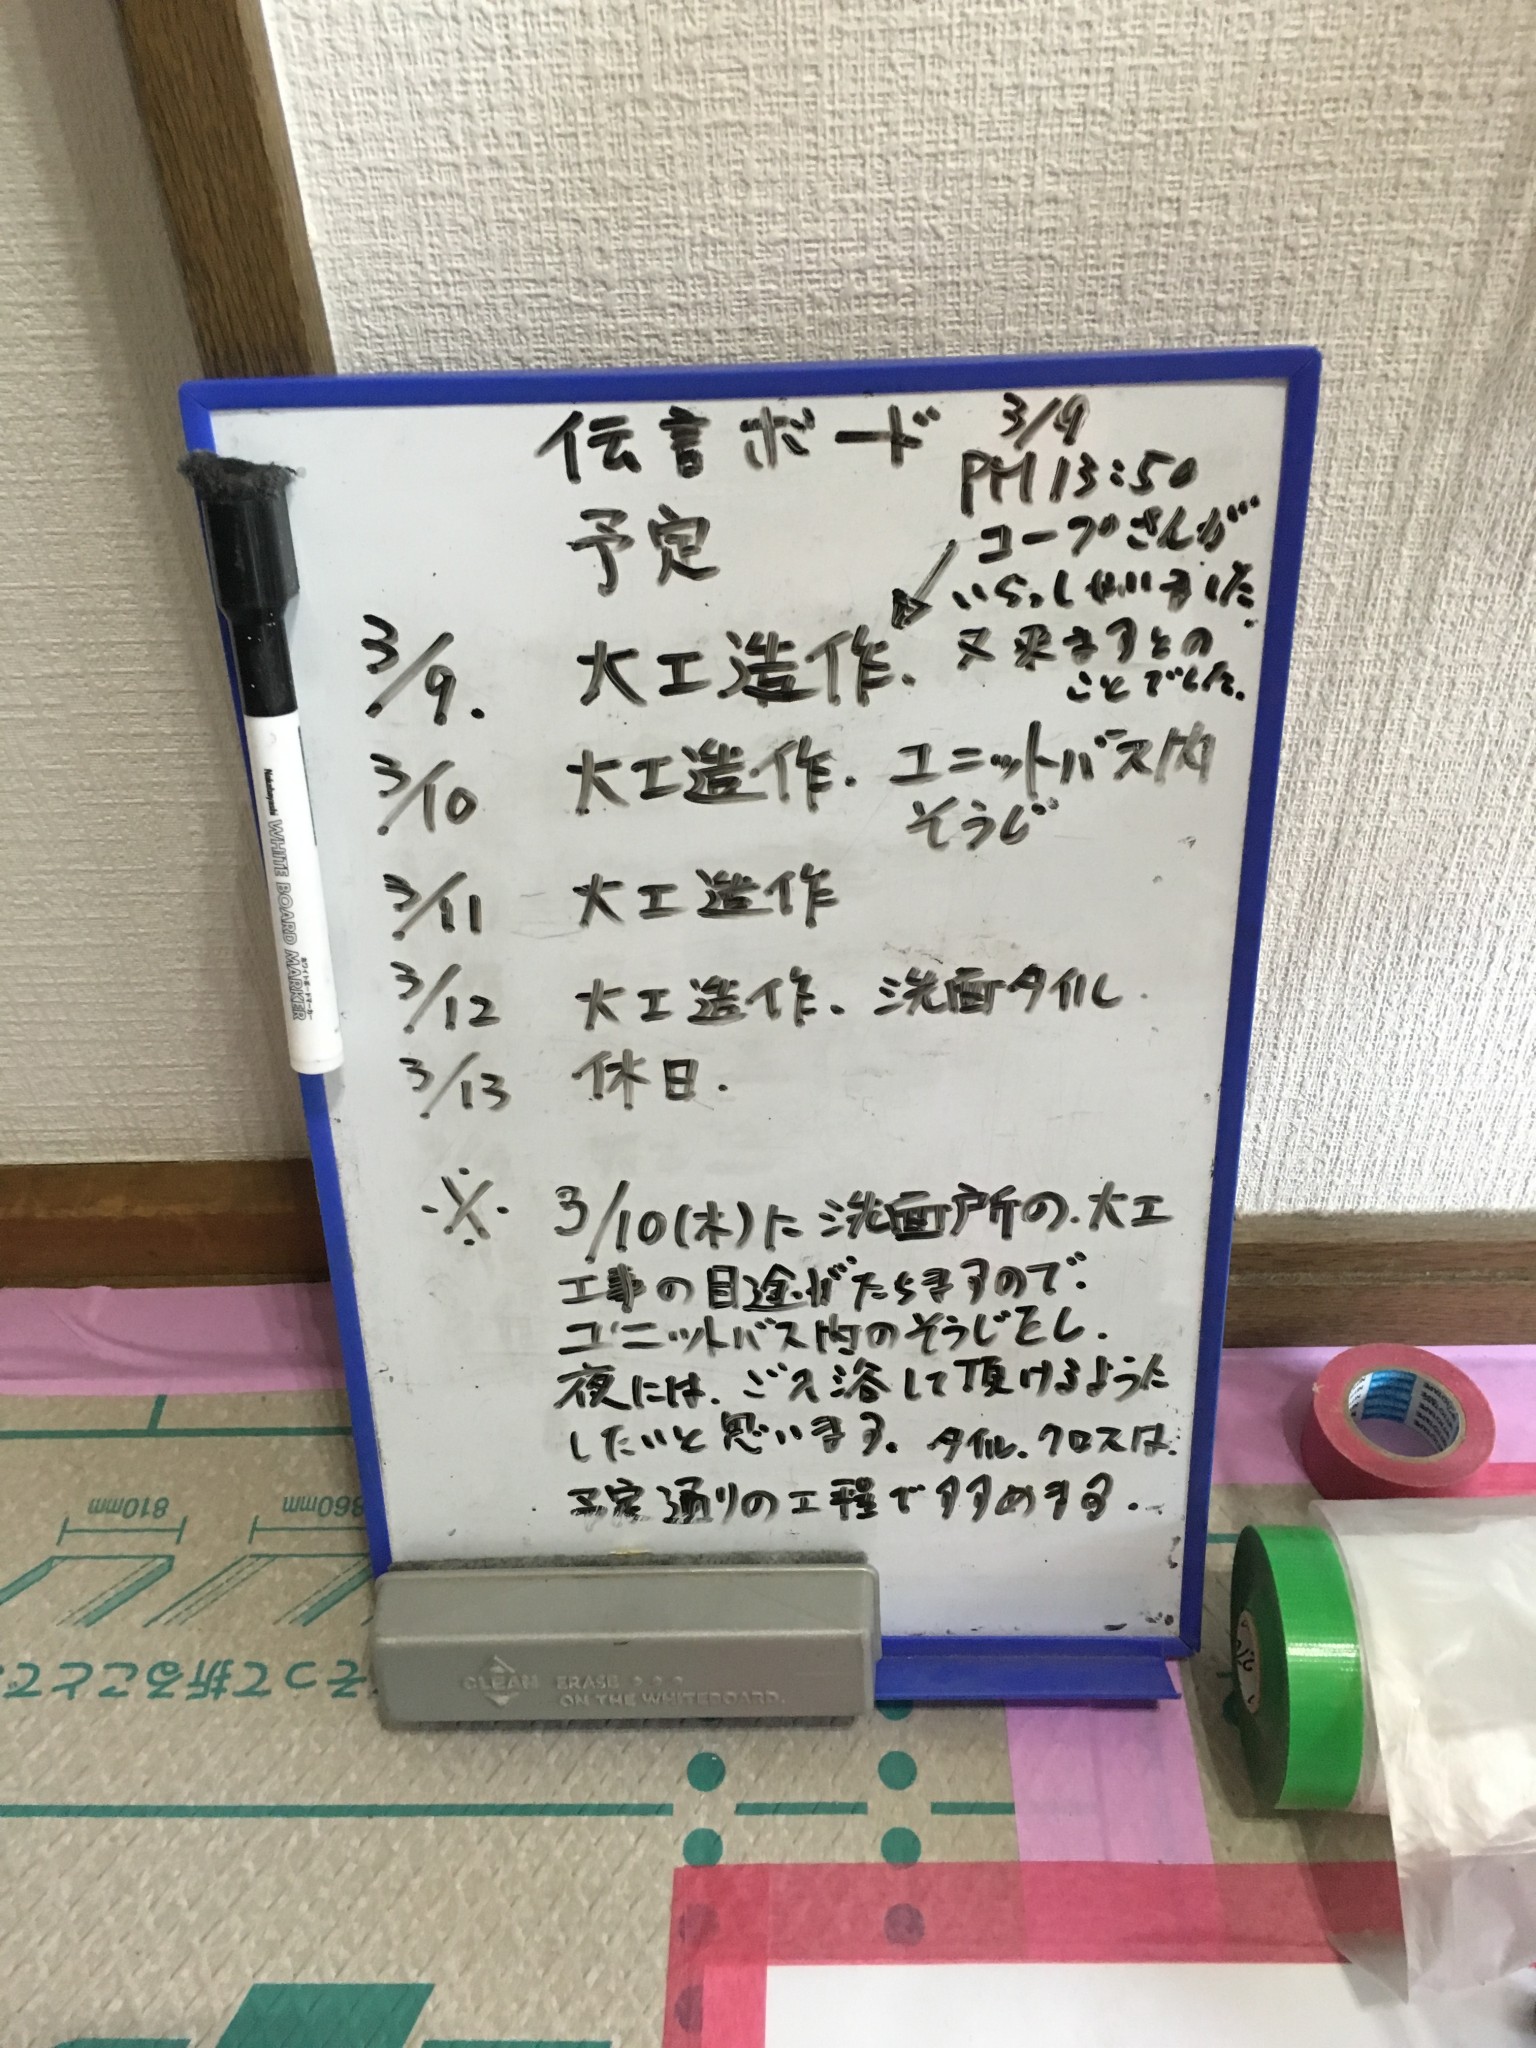 伝言ボード
3/9
PM 13:50
コープさんが
いらっしゃいました。
又来ますとの
ことでした。
予定
3/9. 大工造作.
3/10 大工造作. ユニットバス内
そうじ
3/11 大工造作
3/12 大工造作. 洗面タイル.
3/13 休日.
※ 3/10(木)に洗面所の.大工
工事の目途がたちますので.
ユニットバス内のそうじをし.
夜には.ご入浴して頂けるように
したいと思います. タイル.クロスは.
予定通りの工程ですすめます.
Nakabayashi WHITE BOARD MARKER
CLEAN ERASE >>>
ON THE WHITEBOARD.
810mm
860mm
そって折ることで